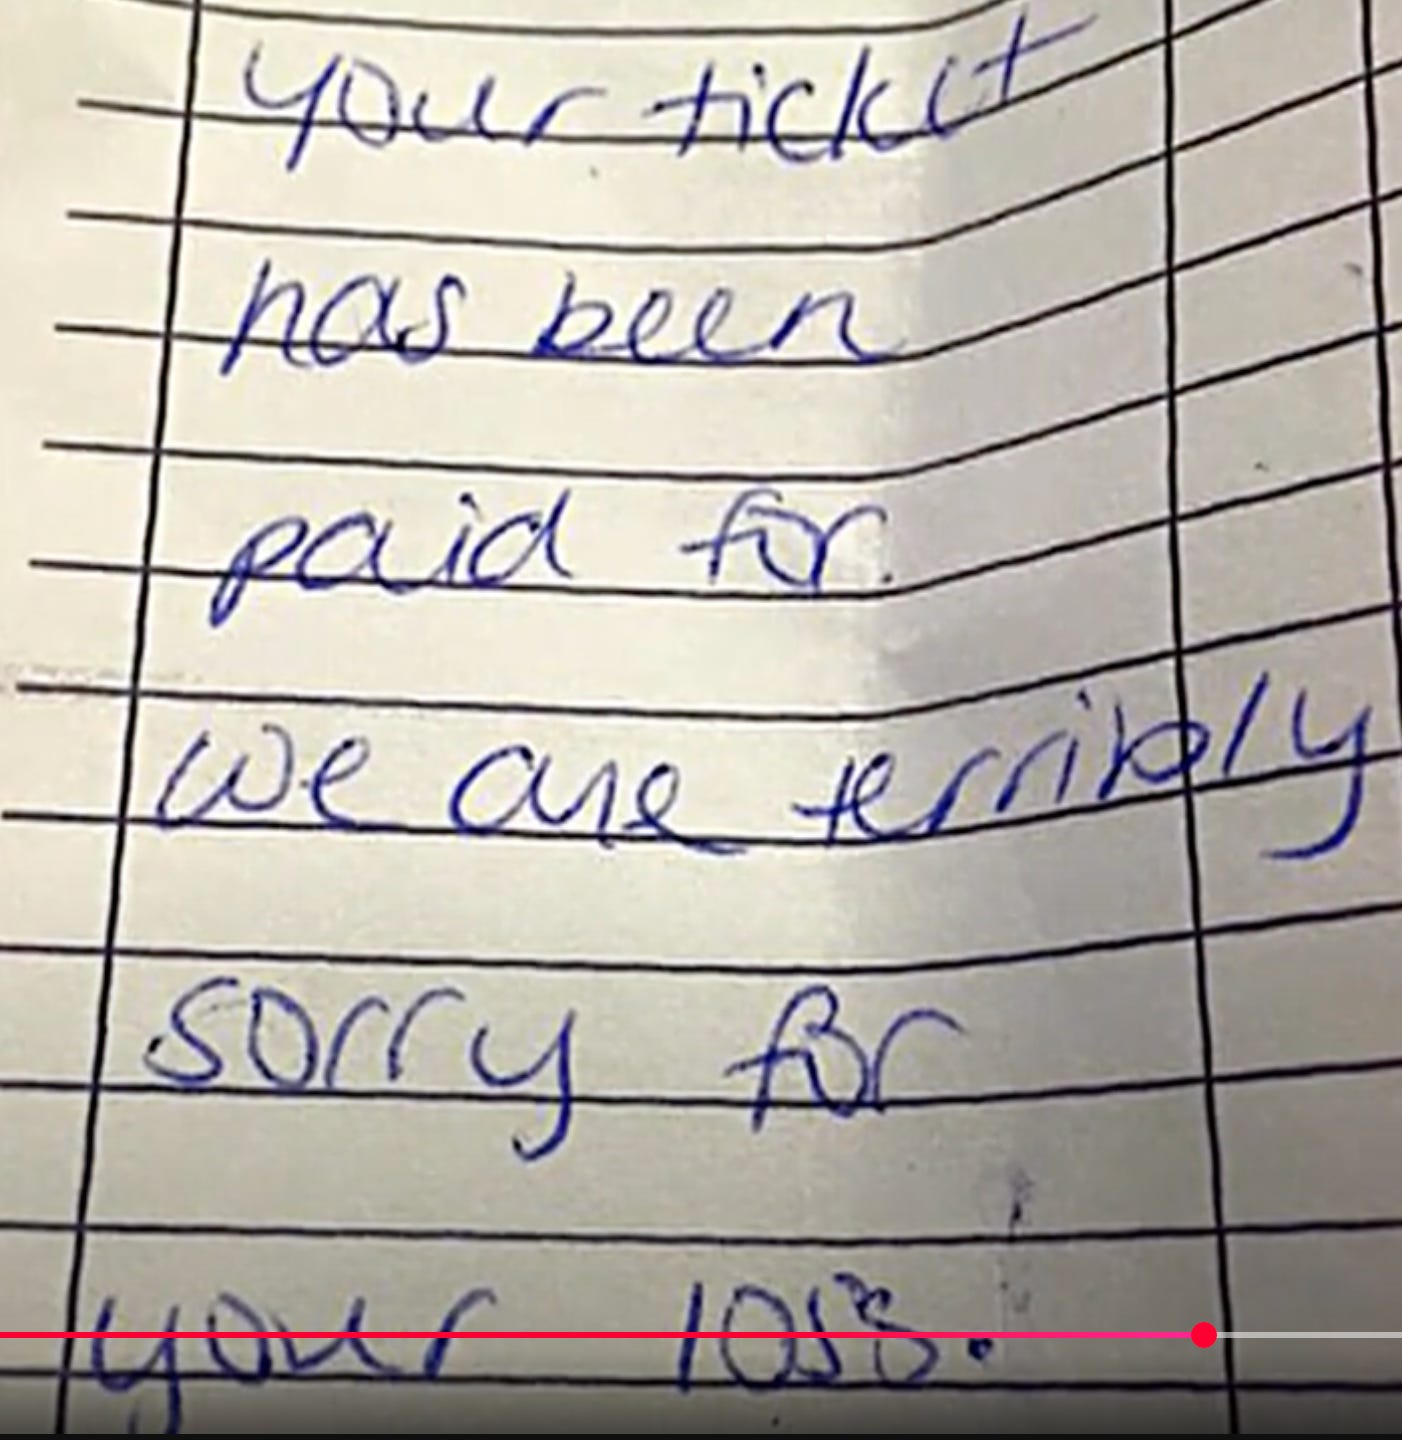 your ticket
has been
paid for.
we are terribly
sorry for
your loss.